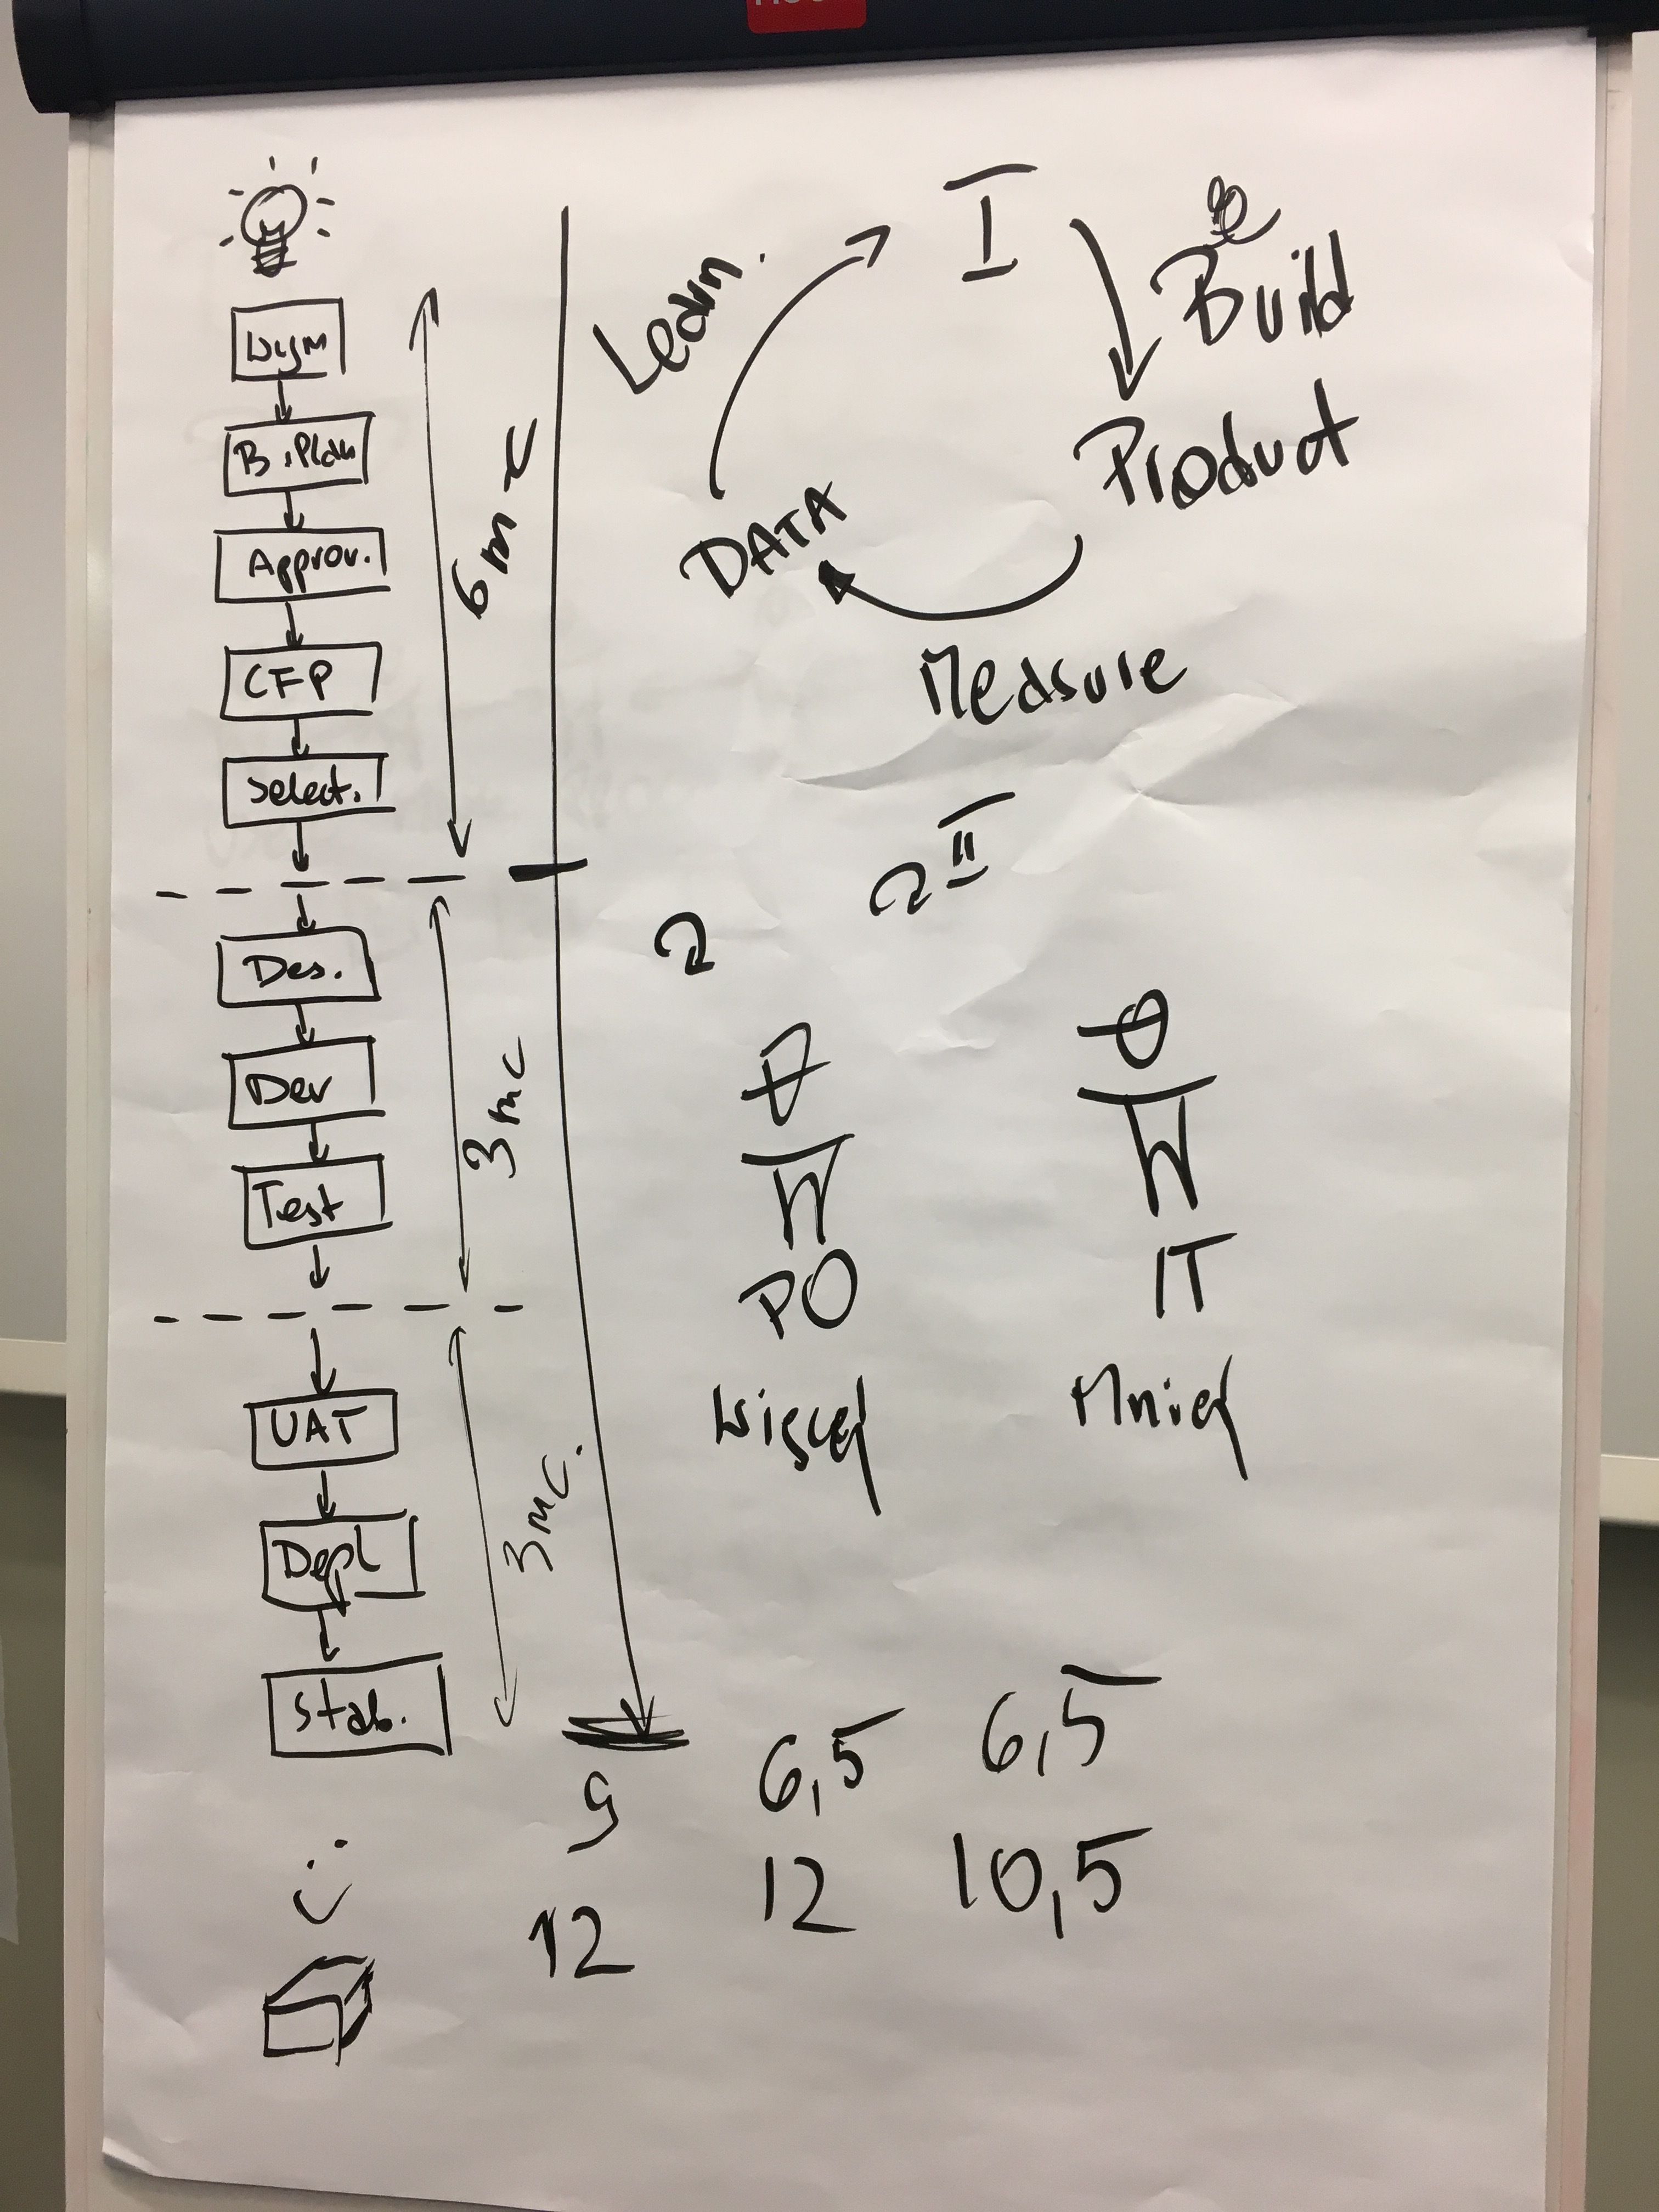 Wym
B.Plan
Approv.
CFP
Select.
6 mc
Des.
Dev
Test
3 mc
UAT
Depl
Stab.
3 mc.
I
Build
Product
Measure
DATA
Learn.
2
2 II
PO
IT
Więcej
Mniej
9
12
6,5
12
6,5
10,5